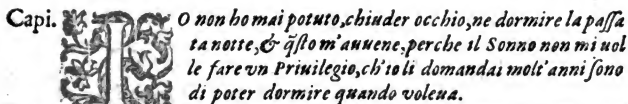 Capi. IO non ho mai potuto,chiuder occhio,ne dormire la passa
ta notte,& q̃sto m'auuene,perche il Sonno non mi uol
le fare vn Priuilegio,ch'io li domandai molt'anni sono
di poter dormire quando voleua.